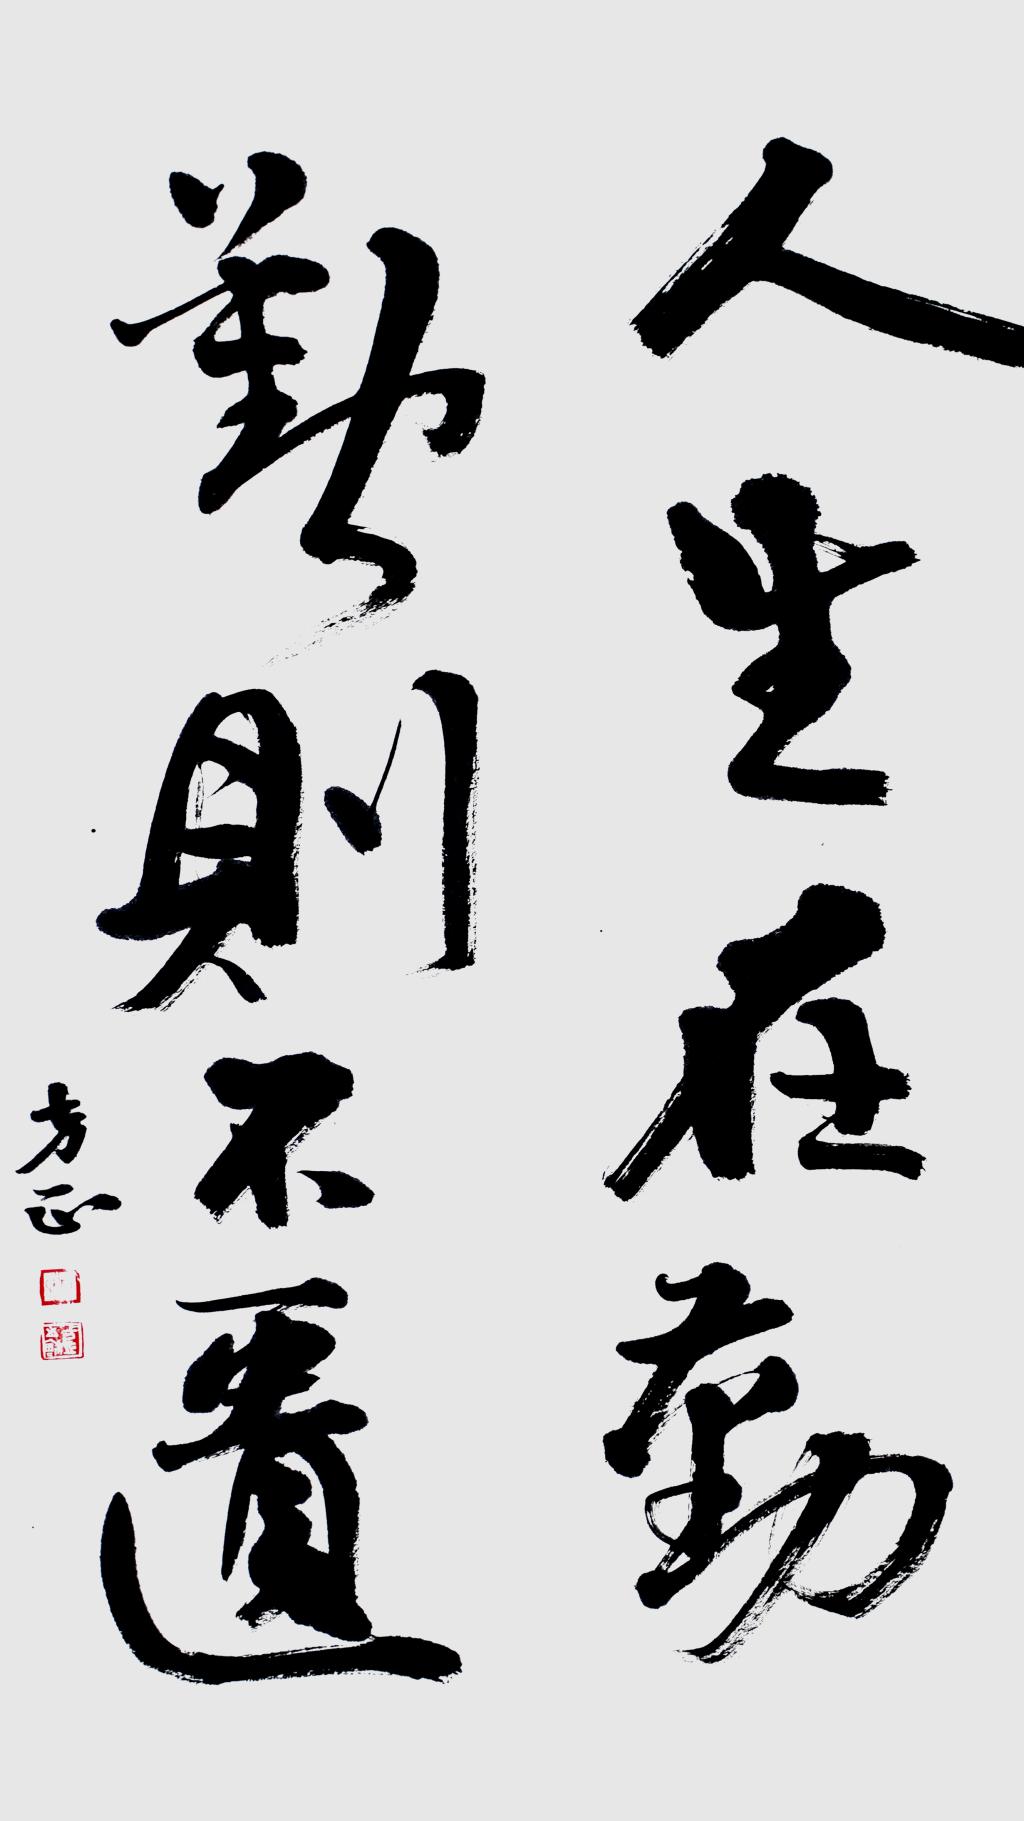 人生在勤
勤則不匱
方正